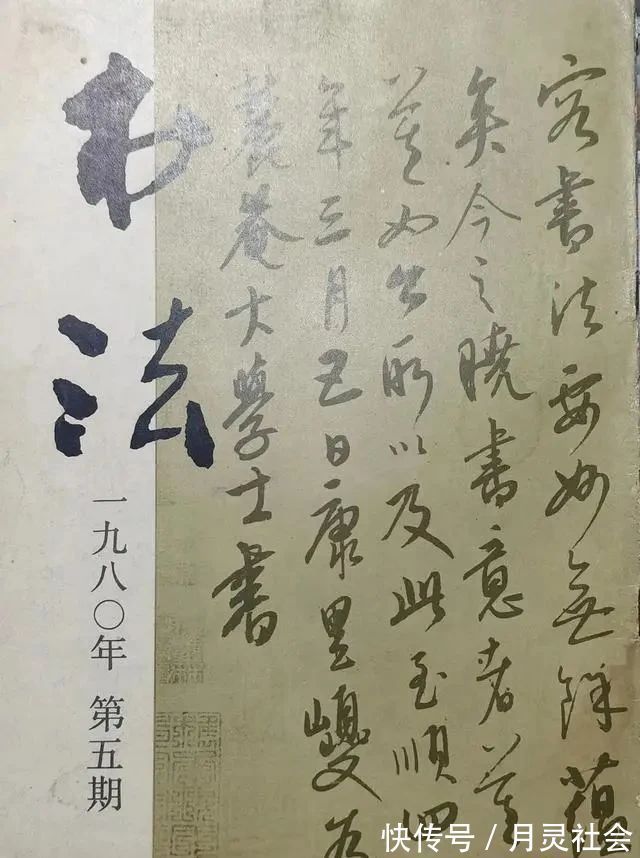 书法
一九八〇年 第五期
容書法要妙無餘蘊
矣今之曉書意者莫
莫如公所以及此至順四
年三月五日康里巎為
麓菴大學士書
快传号／月灵社会